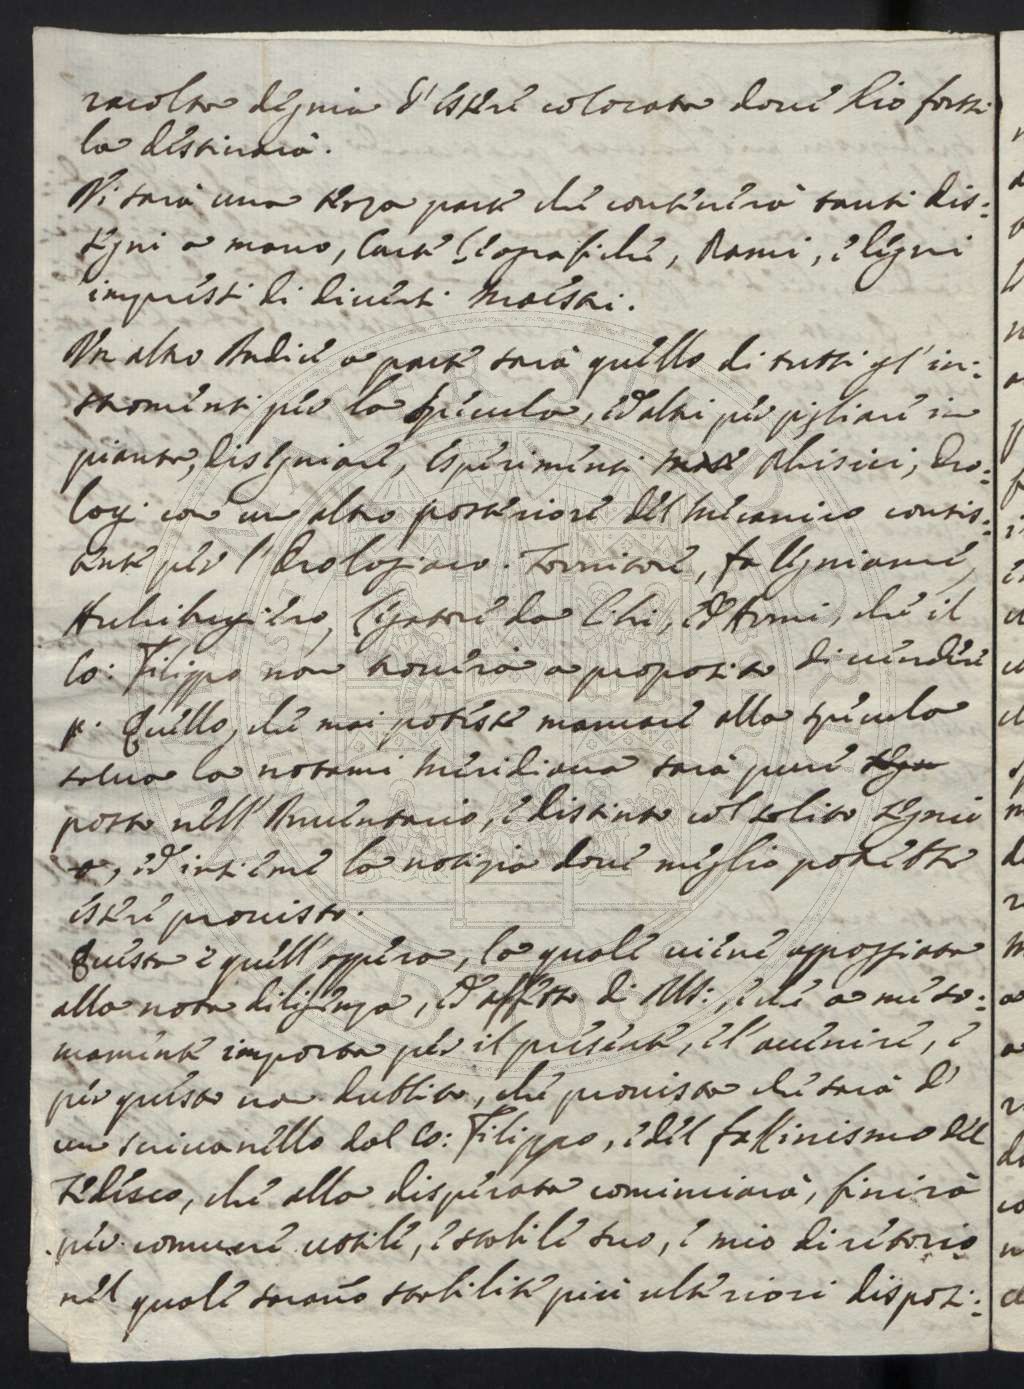 racolta degnia d'essere colocata dove Dio forsi
la destinarà.
Vi sarà una terza parte che contenerà tanti dis=
segni a mano, Carte Geografiche, Rami, e legni
impressi di diversi Maestri.
Un altro Indice a parte sarà quello di tutti gl'in=
stromenti per la specula, ed altri per pigliare in
pianta, disegniare, esperimenti Phisici, Oro=
logi con un altro posteriore del Mecanico consis=
tente per l'Orologiaro. Tornitore, fa legniame,
Archibugiero, legatore da libri, ed Armi, che il
Co: Filippo non troverà a proposito di vendere
p. Quello, che mai potesse mancare alla specula
salva la notami Meridiana sarà pure
posto nell'Inventario, e distinto col solito segnio
o, ed insieme la notizia dove meglio potrebbe
essere provisto.
Questa è quell'oppera, la quale viene appoggiata
alla nota diligenza, ed affetto di RS:, e che a me so=
mamente importa per il presente, e l'avenire, e
per questo non dubbito, che provista che sarà d'
un scrivanello dal Co: Filippo, e del fachinismo del
Tedesco, che alla disperata cominciarà, finirà
per comune utile, e stabile suo, e mio diretorio
nel quale sarano stabilite più ulteriori disposi=